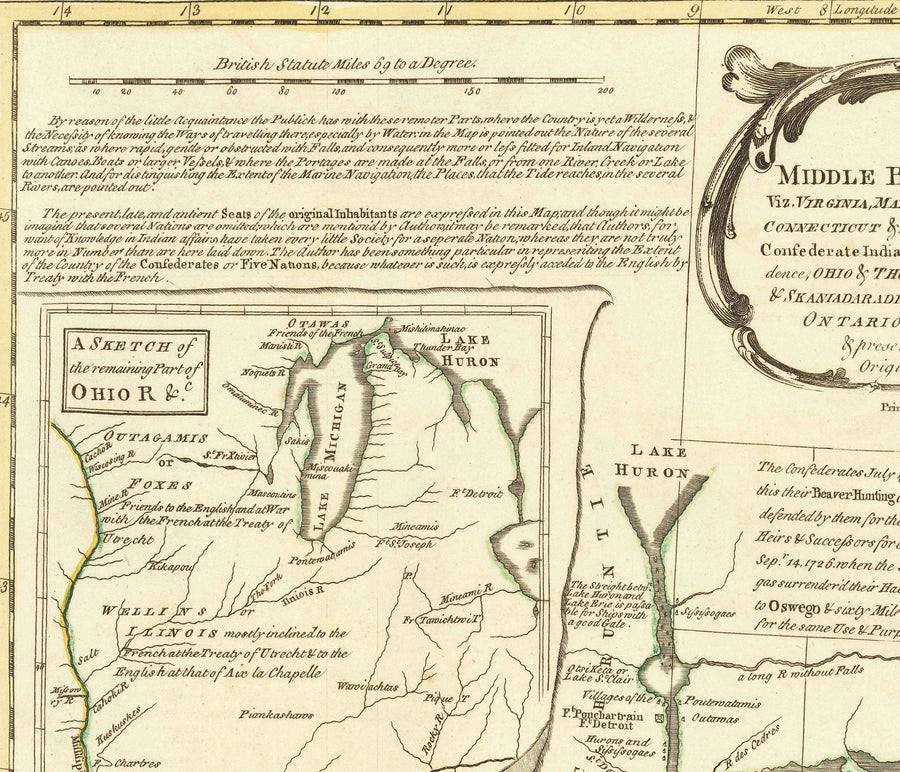 14 13 12 11 10 9 West 8 Longitude
British Statute Miles 69 to a Degree.
10 20 40 60 80 100 150 200
By reason of the little Acquaintance the Publick has with these remoter Parts, where the Country is yet a Wilderness, &
the Necessity of knowing the Ways of travelling there, especially by Water: in the Map is pointed out the Nature of the several
Streams; as where rapid, gentle or obstructed with Falls, and consequently more or less fitted for Inland Navigation
with Canoes, Boats or larger Vessels, & where the Portages are made at the Falls, or from one River, Creek or Lake
to another. And for distinguishing the Extent of the Marine Navigation, the Places that the Tide reaches, in the several
Rivers, are pointed out.
The present, late, and antient Seats of the original Inhabitants are expressed in this Map; and though it might be
imagind that several Nations are omitted, which are mention'd by Authors, it may be remarked, that Authors, for
want of Knowledge in Indian affairs have taken every little Society for a seperate Nation, whereas they are not truly
more in Number than are here laid down. The Author has been something particular in representing the Extent
of the Country of the Confederates or Five Nations, because whatever is such, is expressly acceded to the English by
Treaty with the French.
MIDDLE B
Viz. VIRGINIA, MA
CONNECTICUT &
Confederate India
dence, OHIO & TH
& SKANIADARAD
ONTARIO
& prese
Orig
Prin
45
4
3
A SKETCH of
the remaining Part of
OHIO R &c.
OTAWAS
Friends of the French
Manisti R
Noquets R
Mishilimakinac
Thunder Bay
LAKE
HURON
Grand
LAKE MICHIGAN
Sakis
Miscouaki-
mina
Mascoutins
OUTAGAMIS
Cacho R
Wiscosing R
or
St. Fr Xtivier
FOXES
Mine R
Friends to the English, and at War
with the French at the Treaty of
Utrecht
Ft. Detroit
Mineamis
Ft. St. Joseph
Pontewatamis
Kikapou
The Fork
Illinois R
P.
Mineami R
Fr Tawichtwi T
WELLINS or
ILINOIS mostly inclined to the
French at the Treaty of Utrecht & to the
English at that of Aix la Chapelle
Salt
40
Missow-
ry R
Cahoki R
Kuskuskes
F. Chartres
Wawiachtas
Pique T
Piankashaws
Rocky R
LAKE
HURON
The Streight betn.
Lake Huron and
Lake Erie is passa-
ble for Ships with
a good Gale.
Sissisogaes
Otsi Keta or
Lake St. Clair
a long R without Falls
Villages of the
Pontewatamis
Outawas
Ft. Ponchartrain
Ft. Detroit
Hurons and
Sissisogaes
R des Cedres
The Confederates July
this their Beaver Hunting
defended by them for the
Heirs & Successors for e
Sepr. 14. 1726. when the
gas surrender'd their Ha
to Oswego & sixty Mile
for the same Use & Purp